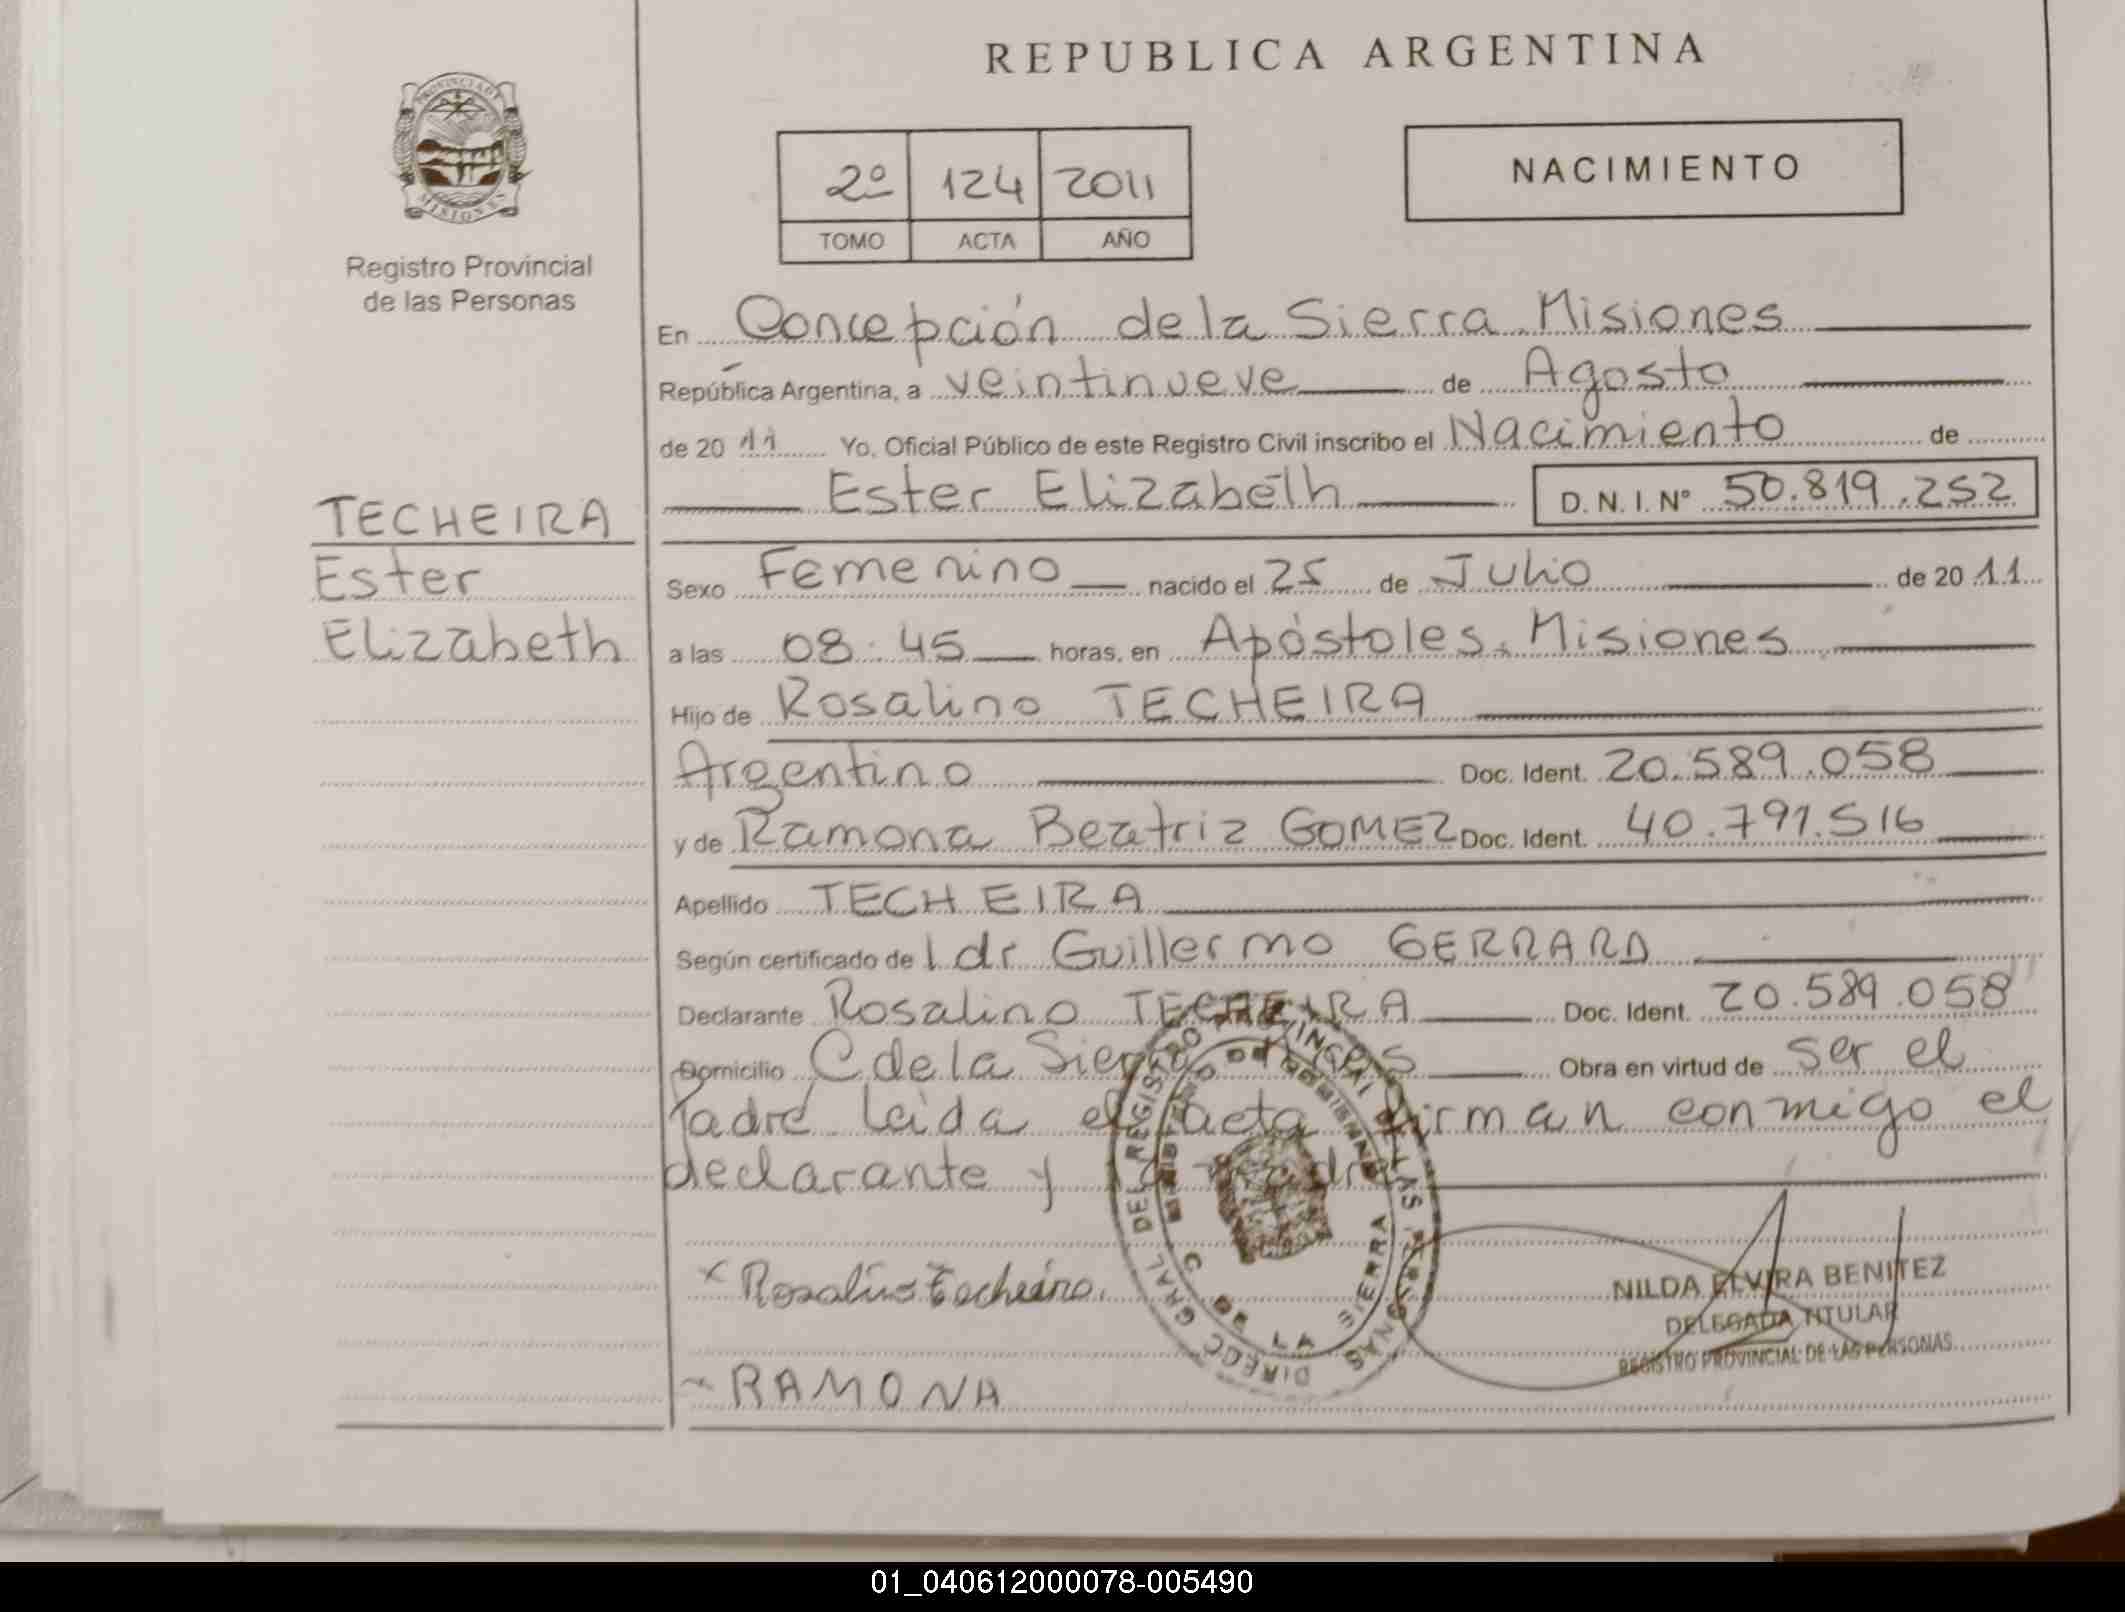 REPUBLICA ARGENTINA
PROVINCIA DE MISIONES
Registro Provincial
de las Personas
2º 124 2011
TOMO ACTA AÑO
NACIMIENTO
En Concepción de la Sierra Misiones
República Argentina, a veintinueve de Agosto
de 20 11 Yo, Oficial Público de este Registro Civil inscribo el Nacimiento de
Ester Elizabeth D. N. I. Nº 50.819.252
TECHEIRA
Ester
Elizabeth
Sexo Femenino nacido el 25 de Julio de 20 11
a las 08:45 horas, en Apóstoles. Misiones
Hijo de Rosalino TECHEIRA
Argentino Doc. Ident. 20.589.058
y de Ramona Beatriz GOMEZ Doc. Ident. 40.791.516
Apellido TECHEIRA
Según certificado de l dr Guillermo GERRARD
Declarante Rosalino TECHEIRA Doc. Ident. 20.589.058
Domicilio C de la Sierra Obra en virtud de ser el
Padre leida el acta firman conmigo el
declarante y la madre
x Rosalino Techeira
RAMONA
DIRECC GRAL DEL REGISTRO PROVINCIAL DE LAS PERSONAS
C. DE LA SIERRA
NILDA ELVIRA BENITEZ
DELEGADA TITULAR
REGISTRO PROVINCIAL DE LAS PERSONAS
01_040612000078-005490